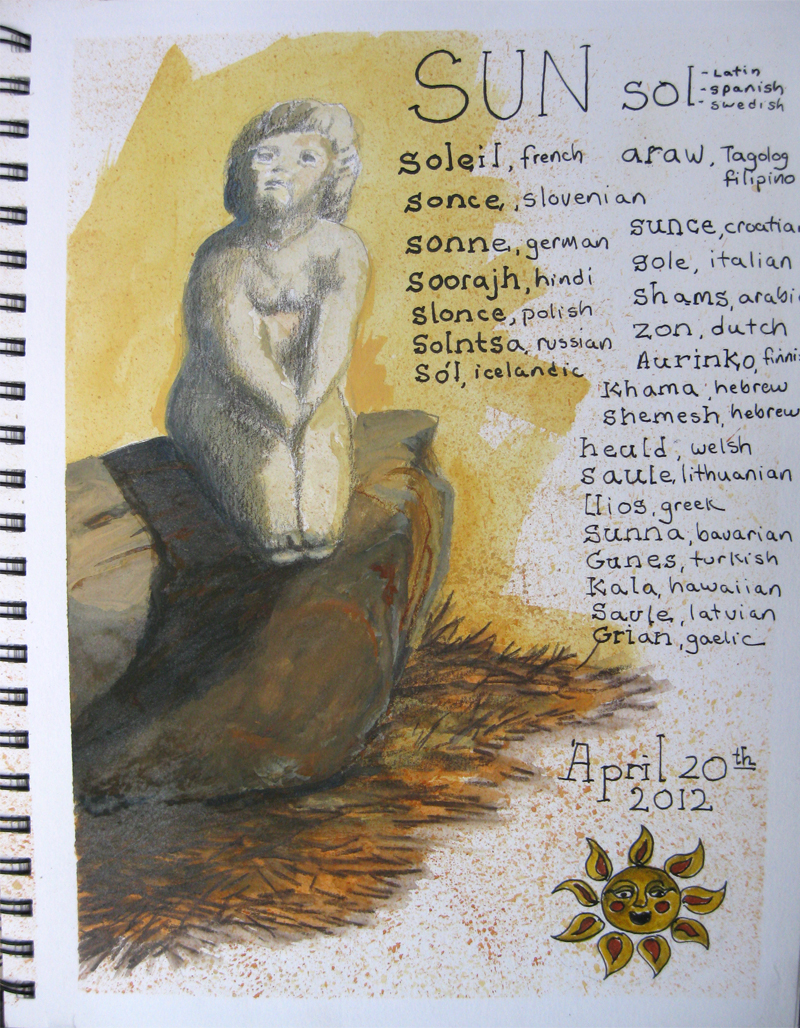 SUN
sol - Latin
- spanish
- swedish
soleil, french
araw, Tagolog
filipino
sonce, slovenian
sunce, croatian
sonne, german
sole, italian
soorajh, hindi
shams, arabi
slonce, polish
zon, dutch
Solntsa, russian
Aurinko, finnis
Sól, icelandic
Khama, hebrew
shemesh, hebrew
heald, welsh
saule, lithuanian
Ilios, greek
Sunna, bavarian
Gunes, turkish
Kala, hawaiian
Saule, latvian
Grian, gaelic
April 20th
2012